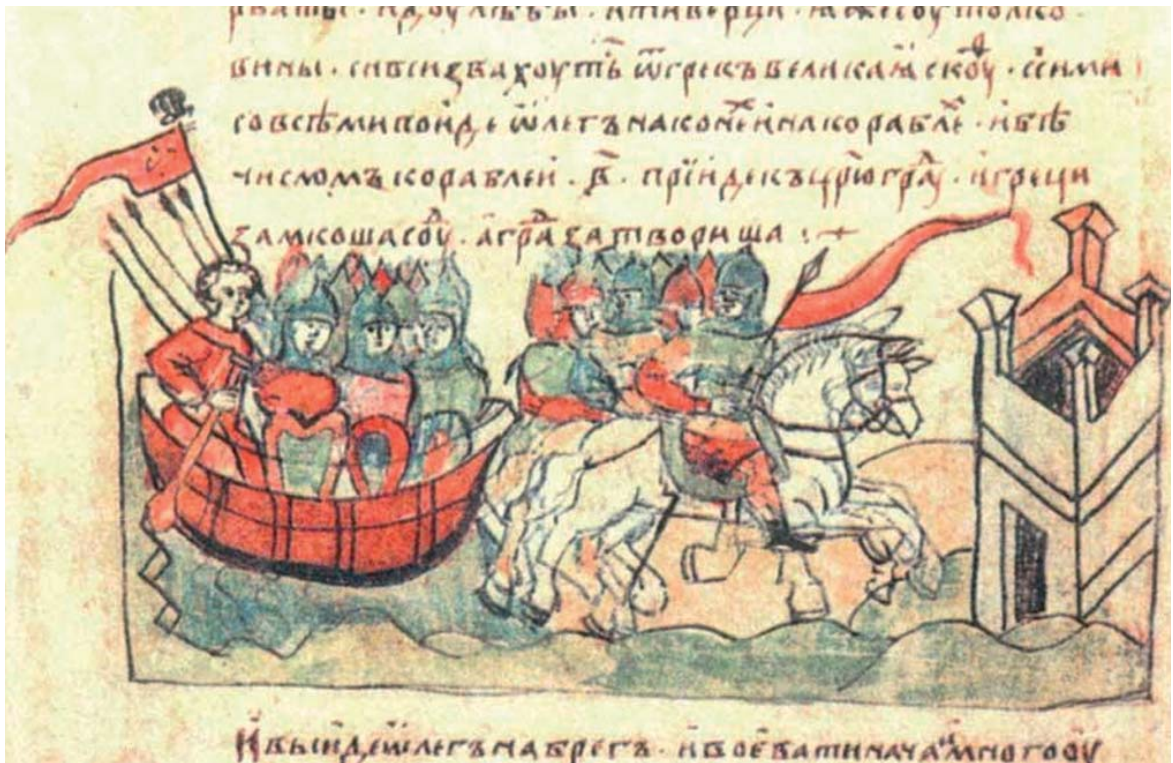 рваты · и доулѣбы · и тиверци · ꙗже соу толко
вины · си вси звахоуть ѿ грекъ великаꙗ скоуⷴ · с сими
со всѣми поиде ѡлегъ на конеⷯ и на кораблеⷯ · и бѣ
числомъ кораблеи · в҃ · прїиде къ цр҃югра · и греци
замкоша соуⷣ · а граⷣ затвориша :·+
И выиде ѡлегъ на брегъ · и воевати нача и много оу